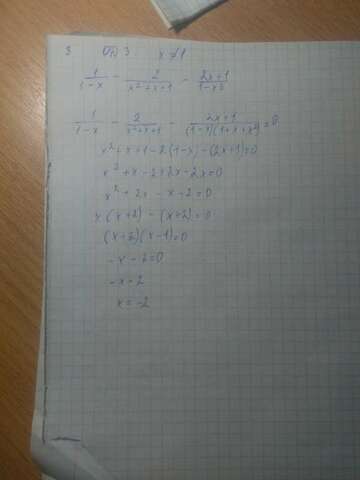 3 ОДЗ x ≠ 1
1/(1-x) - 2/(x²+x+1) - (2x+1)/(1-x³)
1/(1-x) - 2/(x²+x+1) - (2x+1)/((1-x)(1+x+x²)) = 0
x² + x + 1 - 2(1-x) - (2x+1) = 0
x² + x - 2 + 2x - 2x = 0
x² + 2x - x - 2 = 0
x (x+2) - (x+2) = 0
(x+2)(x-1) = 0
-x - 2 = 0
-x - 2
x = -2